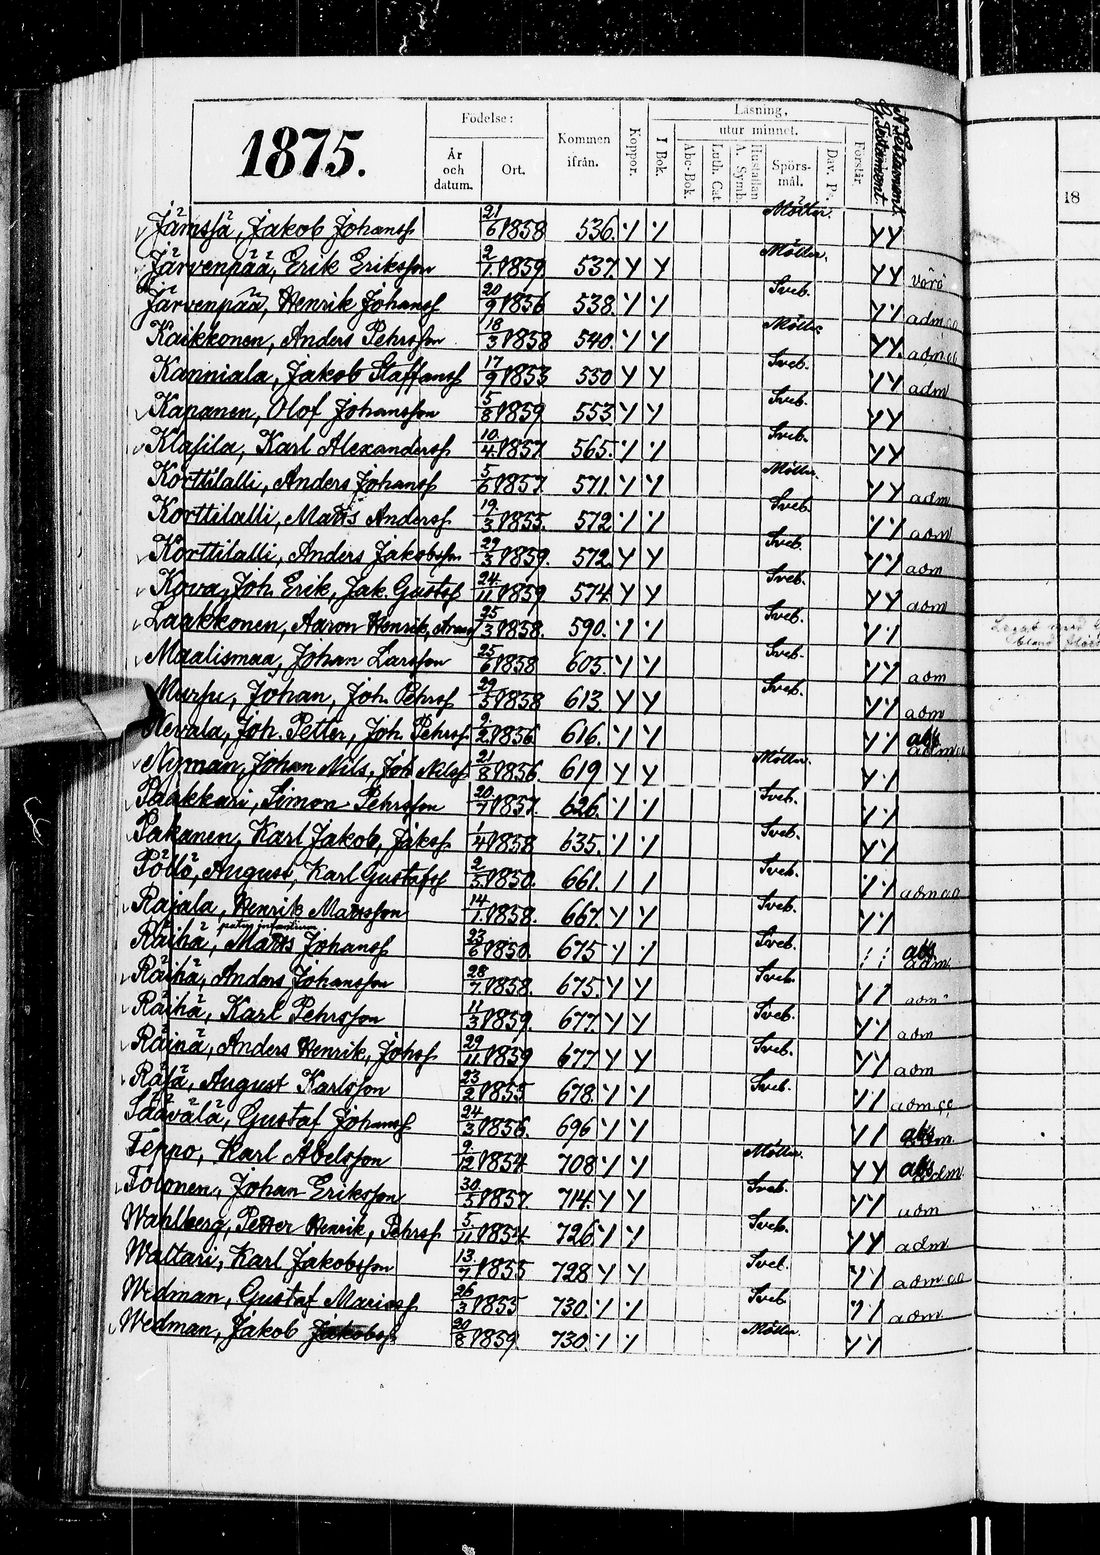 1875.
Födelse:
År och datum.
Ort.
Kommen ifrån.
Koppor.
Läsning,
I Bok.
utur minnet.
Abc-Bok.
Luth. Cat.
A. Symb.
Hustaflan
Spörs-mål.
Dav. Ps.
Förstår.
18
Jämsjä, Jakob Johansf 21/6 1858 536. Y Y Möller. Y Y
Järvenpää, Erik Eriksson 2/1 1859 537. Y Y Möller. Y Y Vörå
Järvenpää, Henrik Johansf 20/9 1856 538. Y Y Sveb. Y Y adm
Kaikkonen, Anders Pehrsson 18/3 1858 540. Y Y Möller Y Y adm
Kanniala, Jakob Staffansf 17/9 1853 550 Y Y Sveb. Y Y adm
Kapanen, Olof Johansson 5/8 1859 553 Y Y Sveb. Y Y
Klafila, Karl Alexandersf 10/4 1857 565. Y Y Sveb. Y Y
Korttilalli, Anders Johansf 5/6 1857 571 Y Y Möller. Y Y adm
Korttilalli, Matts Andersf 19/3 1855. 572 Y Y Sveb. Y Y adm
Korttilalli, Anders Jakobsson 29/3 1859. 572. Y Y Sveb. Y Y adm
Kova, Joh. Erik, Jak. Gustaf 24/11 1859 574 Y Y Sveb. Y Y adm
Laakkonen, Aaron Henrik, 25/3 1858. 590. Y Y Sveb. Y Y
Maalismaa, Johan Larsson 25/6 1858 605. Y Y Sveb. Y Y adm
Murhu, Johan, Joh. Pehrsf 29/5 1858 613 Y Y Sveb. Y Y adm
Nevala, Joh. Petter, Joh. Pehrsf 9/2 1856 616. Y Y Y Y abs adm
Nyman, Johan Nils, Joh. Nilsf 21/8 1856 619 Y Y Möller. Y Y
Paakkari, Simon Pehrsson 20/7 1857. 626. Y Y Sveb. Y Y
Pakanen, Karl Jakob, Jaksf 1/4 1858 635. Y Y Sveb. Y Y
Pöllö, August, Karl Gustafsf 2/5 1850. 661. 1 1 Sveb. Y Y adm
Rajala, Henrik Mattsson 14/1 1858. 667. Y Y Sveb. Y Y
Räihä, Matts Johansf 23/6 1850. 675 Y Y Sveb. abs adm
Räihä, Anders Johansson 28/7 1858. 675. Y Y Sveb. Y Y adm
Räihä, Karl Pehrsson 11/3 1859. 677. Y Y Sveb. Y Y adm
Räinä, Anders Henrik, Johsf 29/11 1859 677 Y Y Sveb. Y Y adm
Räfä, August Karlsson 23/2 1855 678. Y Y Sveb. Y Y adm
Säävälä, Gustaf Johansf 24/3 1856. 696 Y Y Y Y abs adm
Teppo, Karl Abelsson 9/12 1854 708 Y Y Möller. Y Y abs adm
Tolonen, Johan Eriksson 30/5 1857. 714. Y Y Sveb. Y Y adm
Wahlberg, Petter Henrik, Pehrsf 5/11 1854 726 Y Y Sveb. Y Y adm
Waltari, Karl Jakobsson 13/7 1855 728 Y Y Sveb. Y Y adm
Wedman, Gustaf Mariasf 26/3 1855 730. Y Y Sveb. Y Y adm
Wedman, Jakob Jakobsf 20/8 1859. 730. Y Y Möller. Y Y